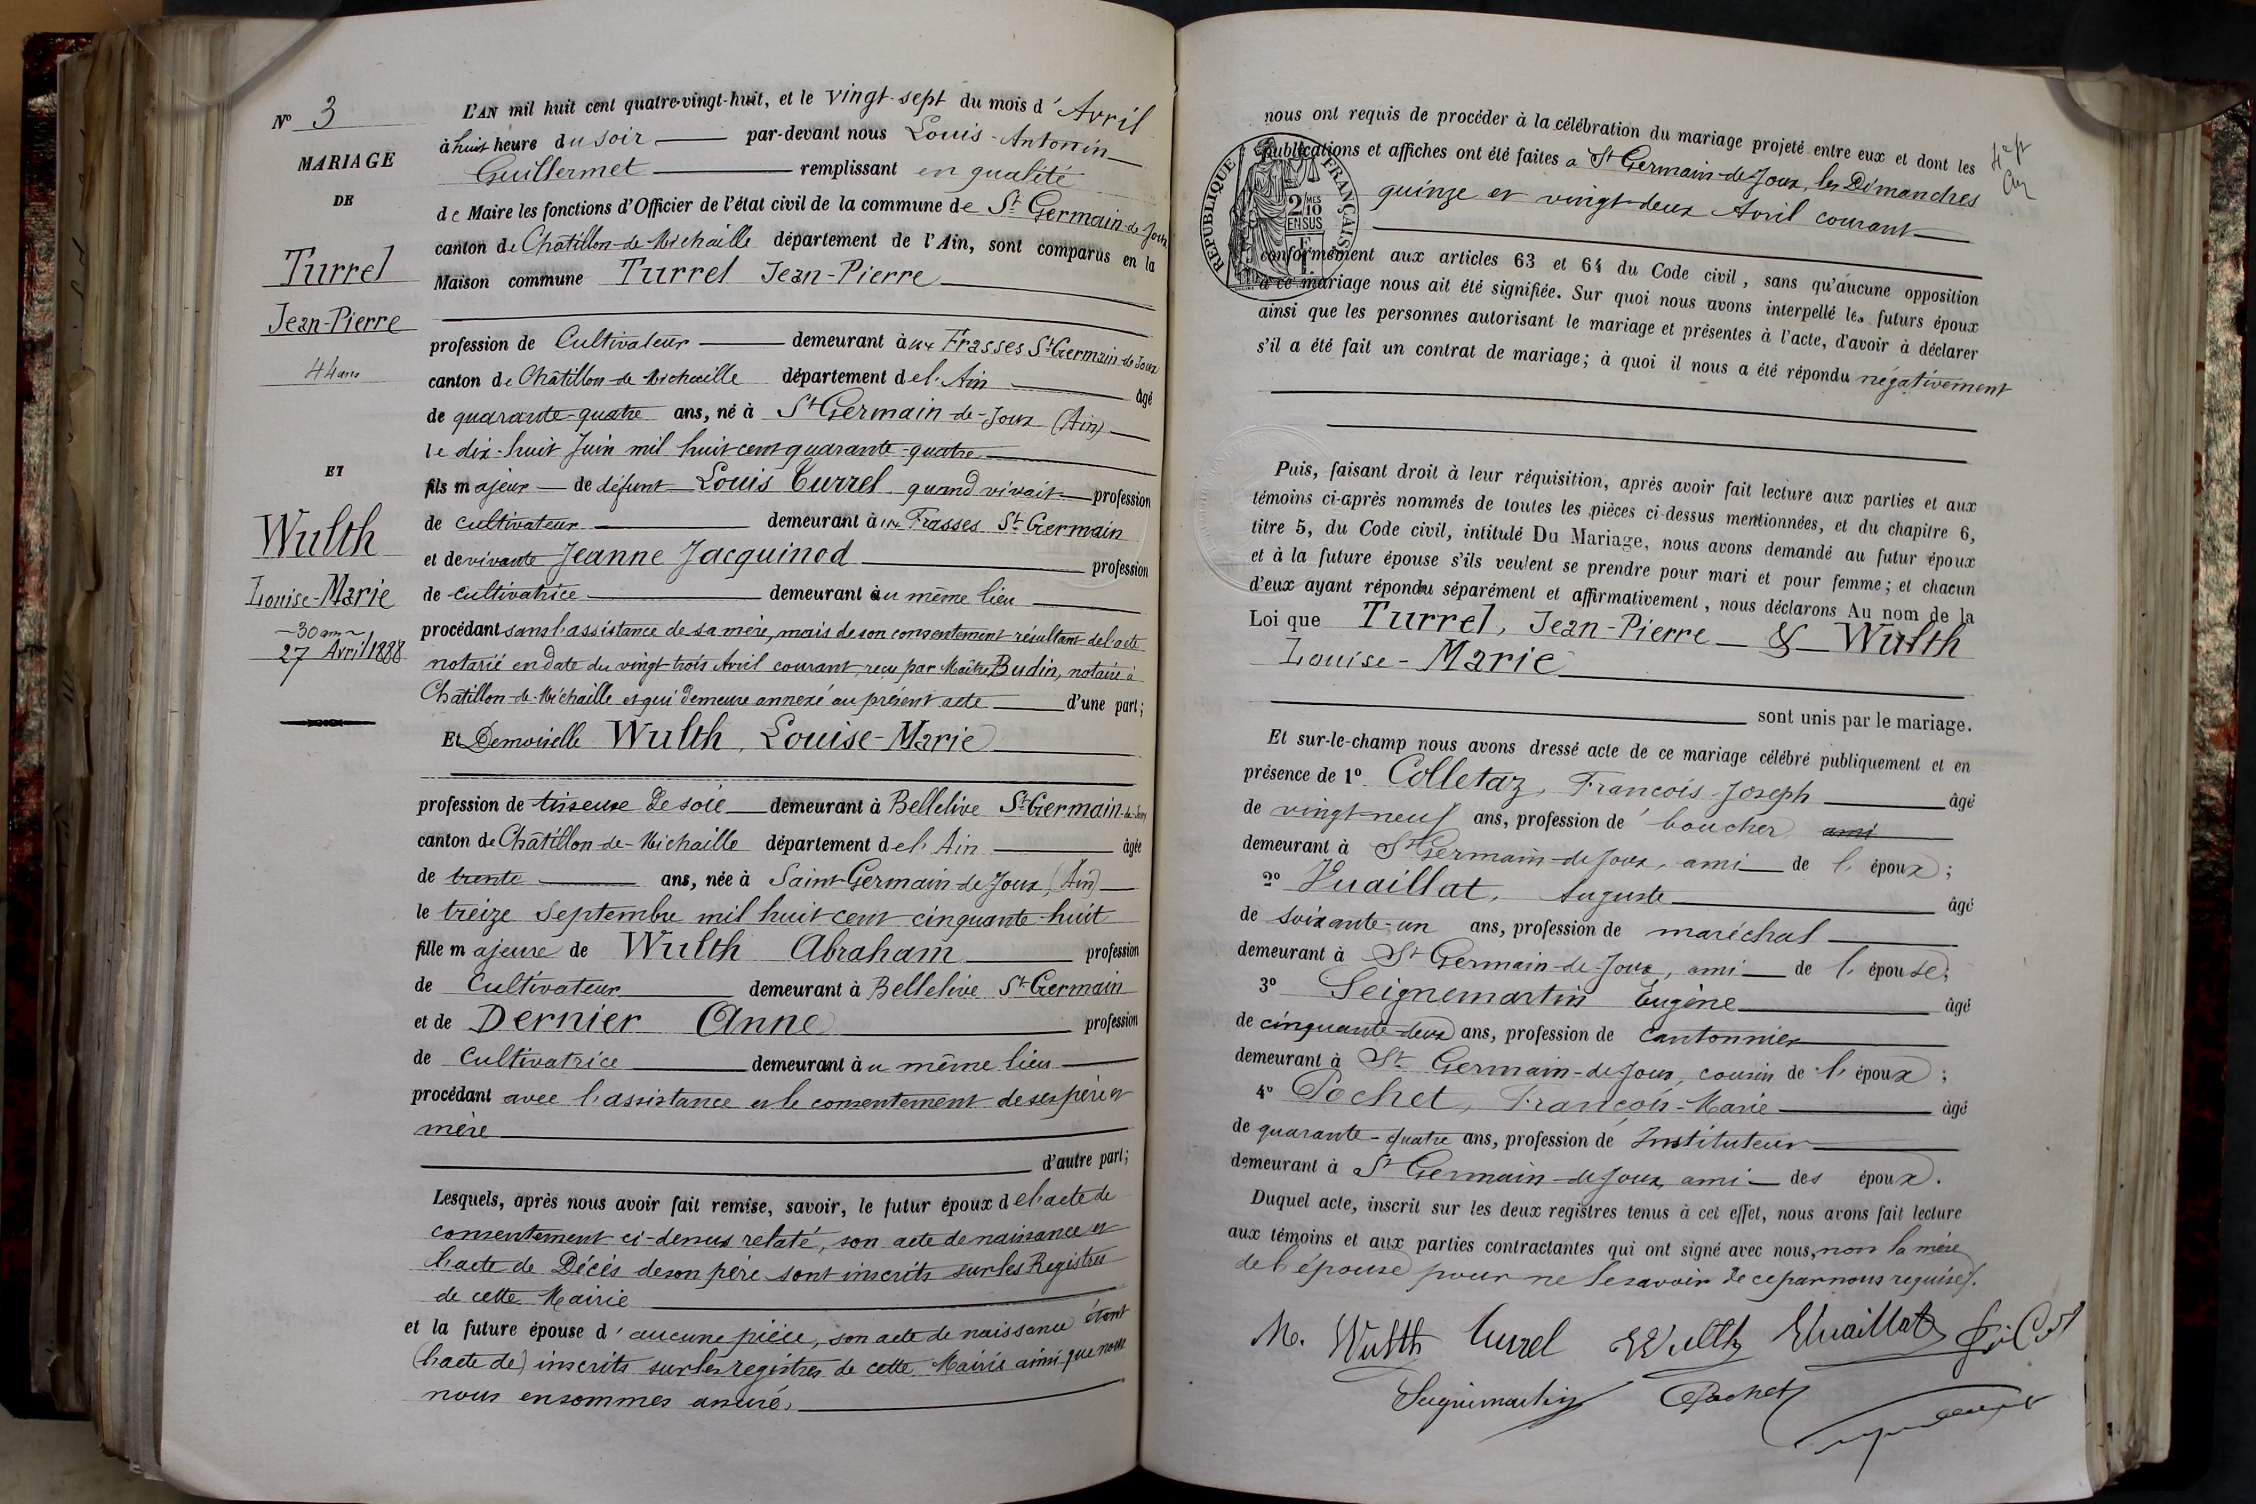 N° 3
MARIAGE
DE
Turrel
Jean-Pierre
44 ans
ET
Wulth
Louise-Marie
30 ans
27 Avril 1888
L'AN mil huit cent quatre-vingt-huit, et le vingt-sept du mois d'Avril
à huit heure du soir par-devant nous Louis-Antonin
Guillermet remplissant en qualité
de Maire les fonctions d'Officier de l'état civil de la commune de St Germain-de-Joux
canton de Châtillon-de-Michaille département de l'Ain, sont comparus en la
Maison commune Turrel Jean-Pierre
profession de Cultivateur demeurant aux Frasses St Germain-de-Joux
canton de Châtillon-de-Michaille département de l'Ain âgé
de quarante-quatre ans, né à St Germain-de-Joux (Ain)
le dix-huit Juin mil huit cent quarante-quatre
fils majeur de défunt Louis Turrel quand vivait profession
de cultivateur demeurant aux Frasses St Germain
et de vivante Jeanne Jacquinod profession
de cultivatrice demeurant au même lieu
procédant sans l'assistance de sa mère, mais de son consentement résultant de l'acte
notarié en date du vingt trois Avril courant, reçu par Maître Budin, notaire à
Châtillon-de-Michaille et qui demeure annexé au présent acte d'une part;
Et Demoiselle Wulth, Louise-Marie
profession de tisseuse de soie demeurant à Bellelive St Germain-de-Joux
canton de Châtillon-de-Michaille département de l'Ain âgée
de trente ans, née à Saint-Germain-de-Joux, (Ain)
le treize Septembre mil huit cent cinquante-huit
fille majeure de Wulth Abraham profession
de Cultivateur demeurant à Bellelive St Germain
et de Dernier Anne profession
de Cultivatrice demeurant au même lieu
procédant avec l'assistance et le consentement de ses père et
mère
d'autre part;
Lesquels, après nous avoir fait remise, savoir, le futur époux de l'acte de
consentement ci-dessus relaté, son acte de naissance et
l'acte de Décès de son père sont inscrits sur les Registres
de cette Mairie
et la future épouse d'aucune pièce, son acte de naissance étant
(l'acte de) inscrits sur les registres de cette Mairie ainsi que nous
nous en sommes assuré,
nous ont requis de procéder à la célébration du mariage projeté entre eux et dont les
publications et affiches ont été faites à St Germain-de-Joux, les Dimanches
quinze et vingt-deux Avril courant
RÉPUBLIQUE FRANÇAISE
2/10 MES
EN SUS
conformément aux articles 63 et 64 du Code civil, sans qu'aucune opposition
à ce mariage nous ait été signifiée. Sur quoi nous avons interpellé les futurs époux
ainsi que les personnes autorisant le mariage et présentes à l'acte, d'avoir à déclarer
s'il a été fait un contrat de mariage; à quoi il nous a été répondu négativement
Puis, faisant droit à leur réquisition, après avoir fait lecture aux parties et aux
témoins ci-après nommés de toutes les pièces ci-dessus mentionnées, et du chapitre 6,
titre 5, du Code civil, intitulé Du Mariage, nous avons demandé au futur époux
et à la future épouse s'ils veulent se prendre pour mari et pour femme; et chacun
d'eux ayant répondu séparément et affirmativement, nous déclarons Au nom de la
Loi que Turrel, Jean-Pierre & Wulth
Louise-Marie
sont unis par le mariage.
Et sur-le-champ nous avons dressé acte de ce mariage célébré publiquement et en
présence de 1° Colletaz, François-Joseph âgé
de vingt-neuf ans, profession de boucher ami
demeurant à St Germain-de-Joux, ami de l'époux;
2° Vuaillat, Auguste âgé
de soixante-un ans, profession de maréchal
demeurant à St Germain-de-Joux, ami de l'épouse;
3° Seignemartin Eugène âgé
de cinquante-deux ans, profession de Cantonnier
demeurant à St Germain-de-Joux, cousin de l'époux;
4° Pochet, François-Marie âgé
de quarante-quatre ans, profession de Instituteur
demeurant à St Germain-de-Joux, ami des époux.
Duquel acte, inscrit sur les deux registres tenus à cet effet, nous avons fait lecture
aux témoins et aux parties contractantes qui ont signé avec nous, non la mère
de l'épouse pour ne le savoir de ce par nous requise.
M. Wulth Turrel Wulth Vuaillat
Seignemartin Pochet